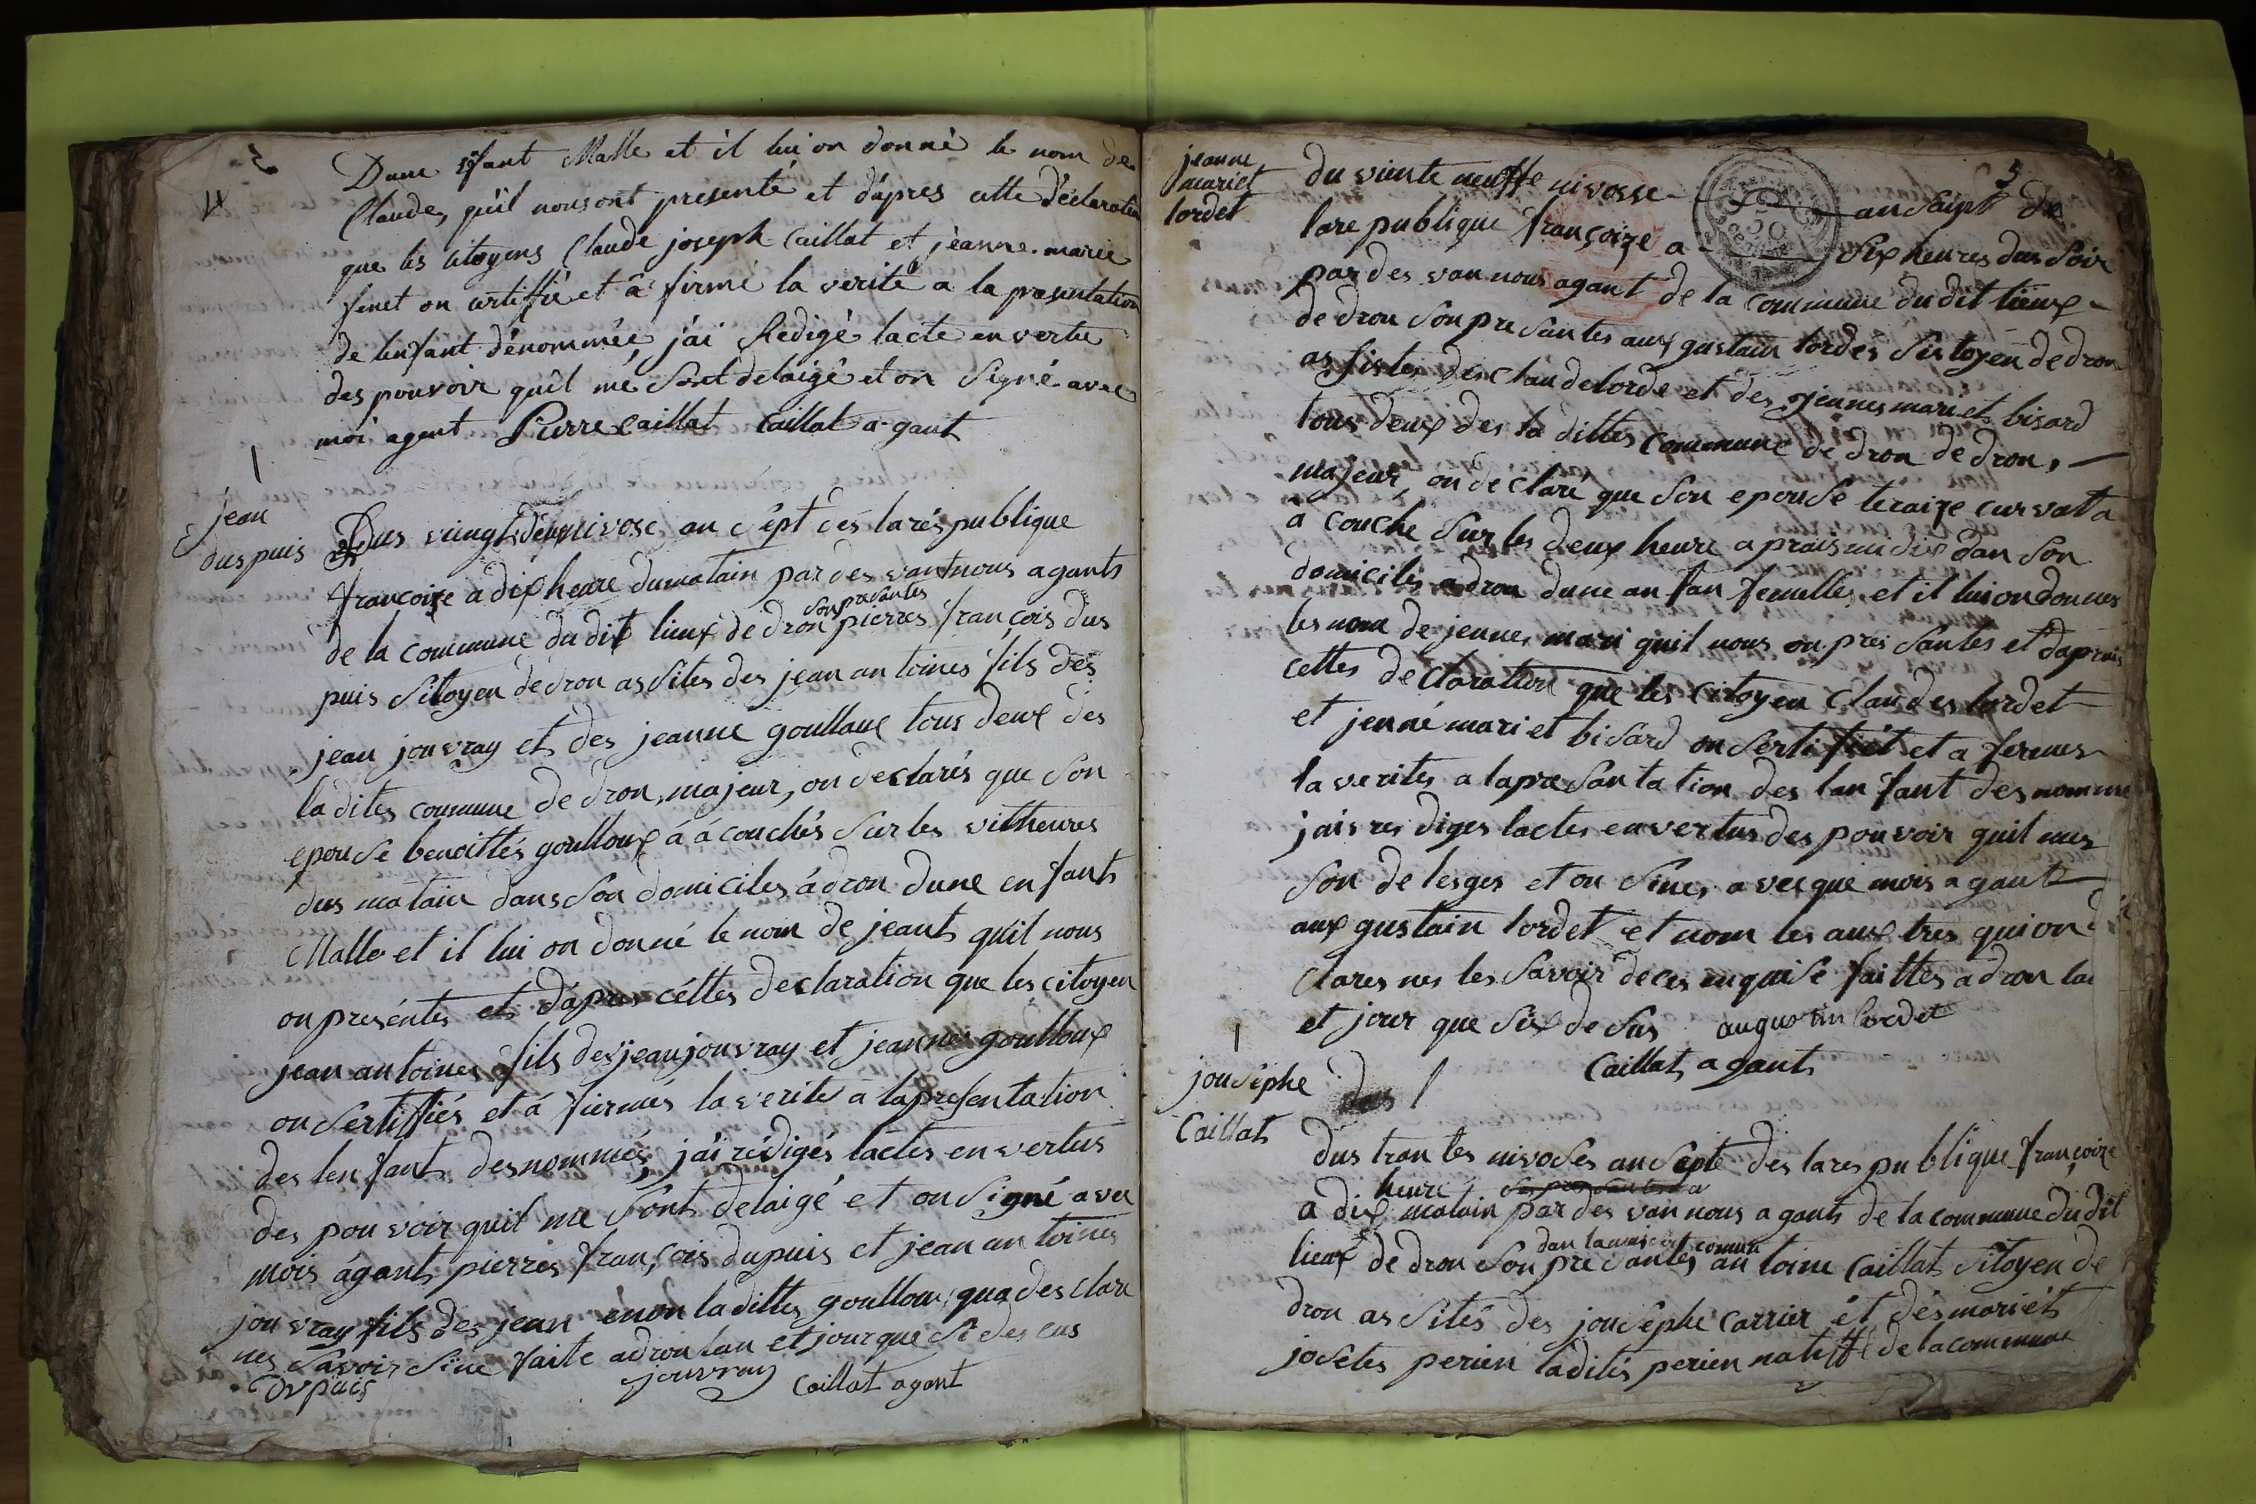 4
Dune enfant Malle et il lui on donné le nom de
Claude, qu'il nous ont présenté et d'apres cette déclaration
que les citoyens Claude joseph Caillat et jeanne-marie
finet on certiffié et â firmé la verité a la presentation
de lenfant dénommée, j'ai Redigé lacte en vertu
des pouvoir qu'il mé sont delaigé et on signé avec
moi agent Pierre Caillat Caillat agant
jean
duspuis
Dus vingt deux nivose an sépt dés larés publique
françoize a dix heure dumatain par des vant nous agants
son presantes
de la commune du dit lieux de dron pierres françois dus
puis sitoyen de dron assites des jean antoines fils des
jean jouvray et des jeanne goulloux tous deux des
la dites commune de dron, majeur, on declarés que son
epouse benoittes goulloux á á couchés sur les vitheures
dus matain dans son domiciles á dron dune enfants
Malle et il lui on donné le nom de jeants qu'il nous
on preséntes et d'apres céttes declaration que les citoyen
jean antoines fils des jean jouvray et jeannes goulloux
on sertiffiés et á firmés la verités a la presentation
des lenfants desnommés, j'ai rédigés lactes en vertus
des pouvoir quil me sont delaigé et on signé avec
mois ágants pierres françois dupuis et jean antoines
jouvray fils des jean enon la dittes goulloux qua des clare
nes savoir sine faite a dron lan et jour que si des cus
Dvpuis jouvray Caillat agant
5
jeanne
mariet
lordet
du vinte neuffe nivosse an saipt de
lare publique françoize a six heures dus soir
par des van nous agant de la commune du dit lieux
de dron son presantes aux gustain lordes sistoyen de dron
as sistes des claude lorde et des jeannes mariet bisard
tous deux des la dittes commune de dron de dron,
majeur, on declaré que son epouse teraize curvat a
a couche sur les deux heure a prais midix dan son
domiciles a dron dune an fan femelles et il lui on donnes
les nom de jennes mari quil nous on pres santes et daprais
cettes declaration que les citoyen claudes lordet
et jenné mariet bisard on sertifiét et a fermes
la verites a lapresantation des lan fant desnomme
jais res diges lactes en vertus des pouvoir quil mes
son de leges et on sines avecque mois agant
aux gustain lordet et nom les aux tres qui on d
clares nes les savoir deces enquise faittes a dron lan
et jour que six de sus augustin lordet
Caillat, agants
jousephe
Caillats
dus trantes nivoses an septe des lares publique françoize
heure
a dix matain par des van nous agants de la commune du dit
dan la maison comun
lieux de dron son presantes antoine Caillat sitoyen de
dron as sités des jousephe carrier ét dés mariéts
josetes perien laditès perien natiffe de la commune